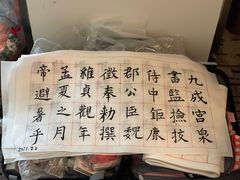 九成宫泉
書監撿挍
侍中鉅康
郡公臣魏
徵奉勅撰
維貞觀年
孟夏之月
帝避暑乎